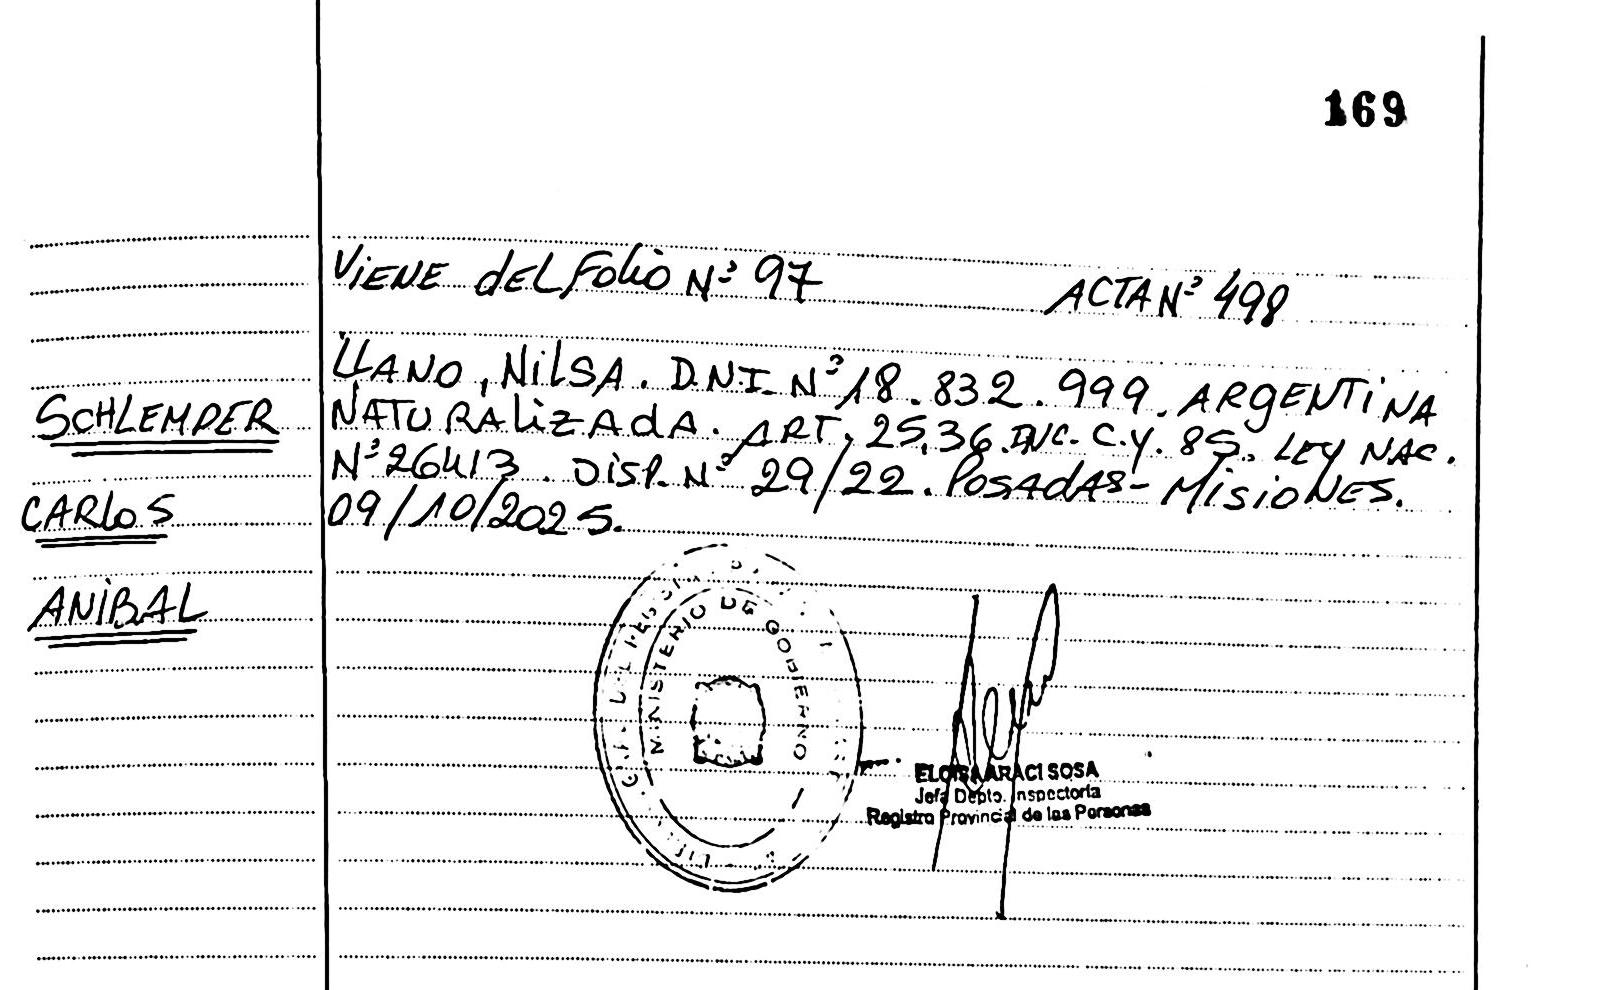 169
ViENE dEL Folio Nº 97 ACTA Nº 498
LLANO, NiLSA. D.N.I. Nº 18.832.999. ARGENTiNA
SCHLEMPER NATURALiZAdA. ART, 25,36 INC. C.Y. 85. LEY NAC.
Nº 26413. DiSP. Nº 29/22. POSAdAS - MiSiONES.
CARLOS 09/10/2025.
ANiBAL
MINISTERIO DE GOBIERNO
ELOISA ARACI SOSA
Jefa Depto. Inspectoría
Registro Provincial de las Personas